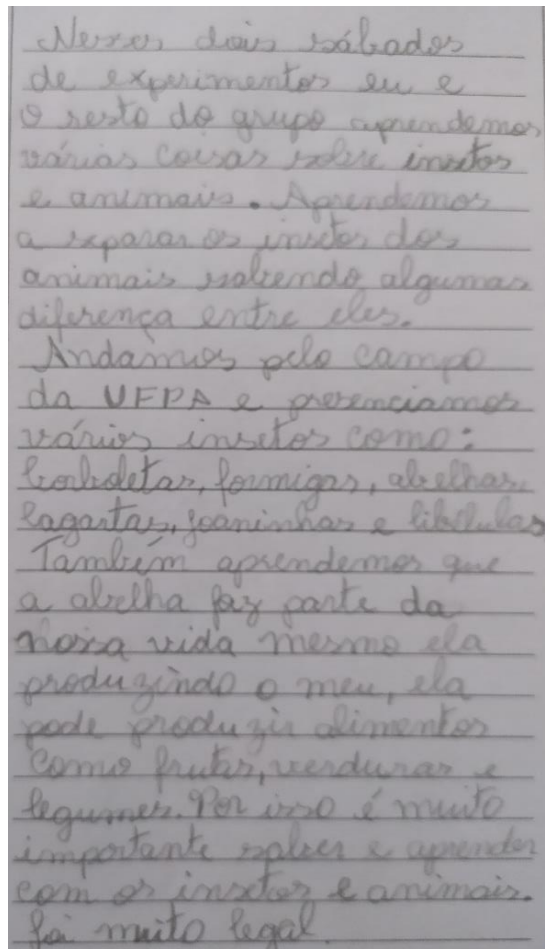 Nesses dois sábados
de experimentos eu e
o resto do grupo aprendemos
várias coisas sobre insetos
e animais. Aprendemos
a separar os insetos dos
animais sabendo algumas
diferença entre eles.
Andamos pelo campo
da UFPA e presenciamos
vários insetos como:
borboletas, formigas, abelhas,
lagartas, joaninhas e libélulas
Também aprendemos que
a abelha faz parte da
nossa vida mesmo ela
produzindo o meu, ela
pode produzir alimentos
como frutas, verduras e
legumes. Por isso é muito
importante saber e aprender
com os insetos e animais.
foi muito legal.